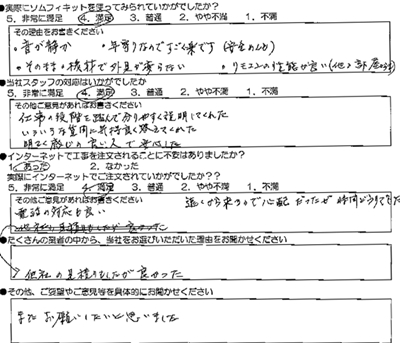 ●実際にソムフィキットを塗ってみられていかがでしたか？
5. 非常に満足 4. 満足 3. 普通 2. やや不満 1. 不満
その理由をお書きください
・音が静か ・年寄りなのですごく楽です
・リモコンの性能が良い
●当社スタッフの対応はいかがでしたか
5. 非常に満足 4. 満足 3. 普通 2. やや不満 1. 不満
その他ご意見があればお書きください
仕事の段階を踏んで分りやすく説明してくれた
いろいろな質問に気持良く答えてくれた
明るく感じの良い人で安心した
●インターネットで工事を注文されることに不安はありましたか？
1. あった 2. なかった
実際にインターネットでご注文されていかがでしたか？？
5. 非常に満足 4. 満足 3. 普通 2. やや不満 1. 不満
その他ご意見があればお書きください
遠くから来るので心配だったが時間どうりでした
電話の対応も良い
●たくさんの業者の中から、当社をお選びいただいた理由をお聞かせください
他社の見積りもしたが良かった
●その他、ご要望やご意見等を具体的にお聞かせください
またお願いしたいと思いました